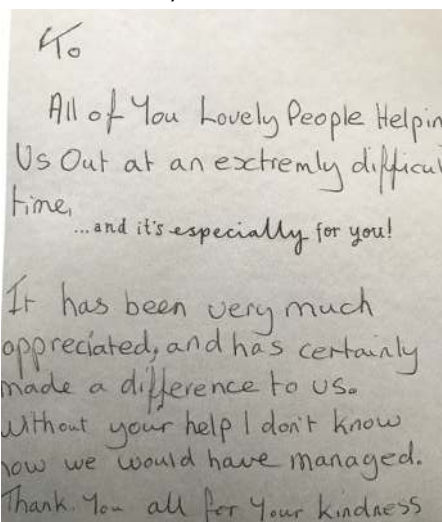 To
All of You Lovely People Helpin
Us Out at an exctremly difficul
time,
...and it's especially for you!
It has been very much
appreciated, and has certainly
made a difference to us.
Without your help I don't know
how we would have managed.
Thank You all for Your kindness